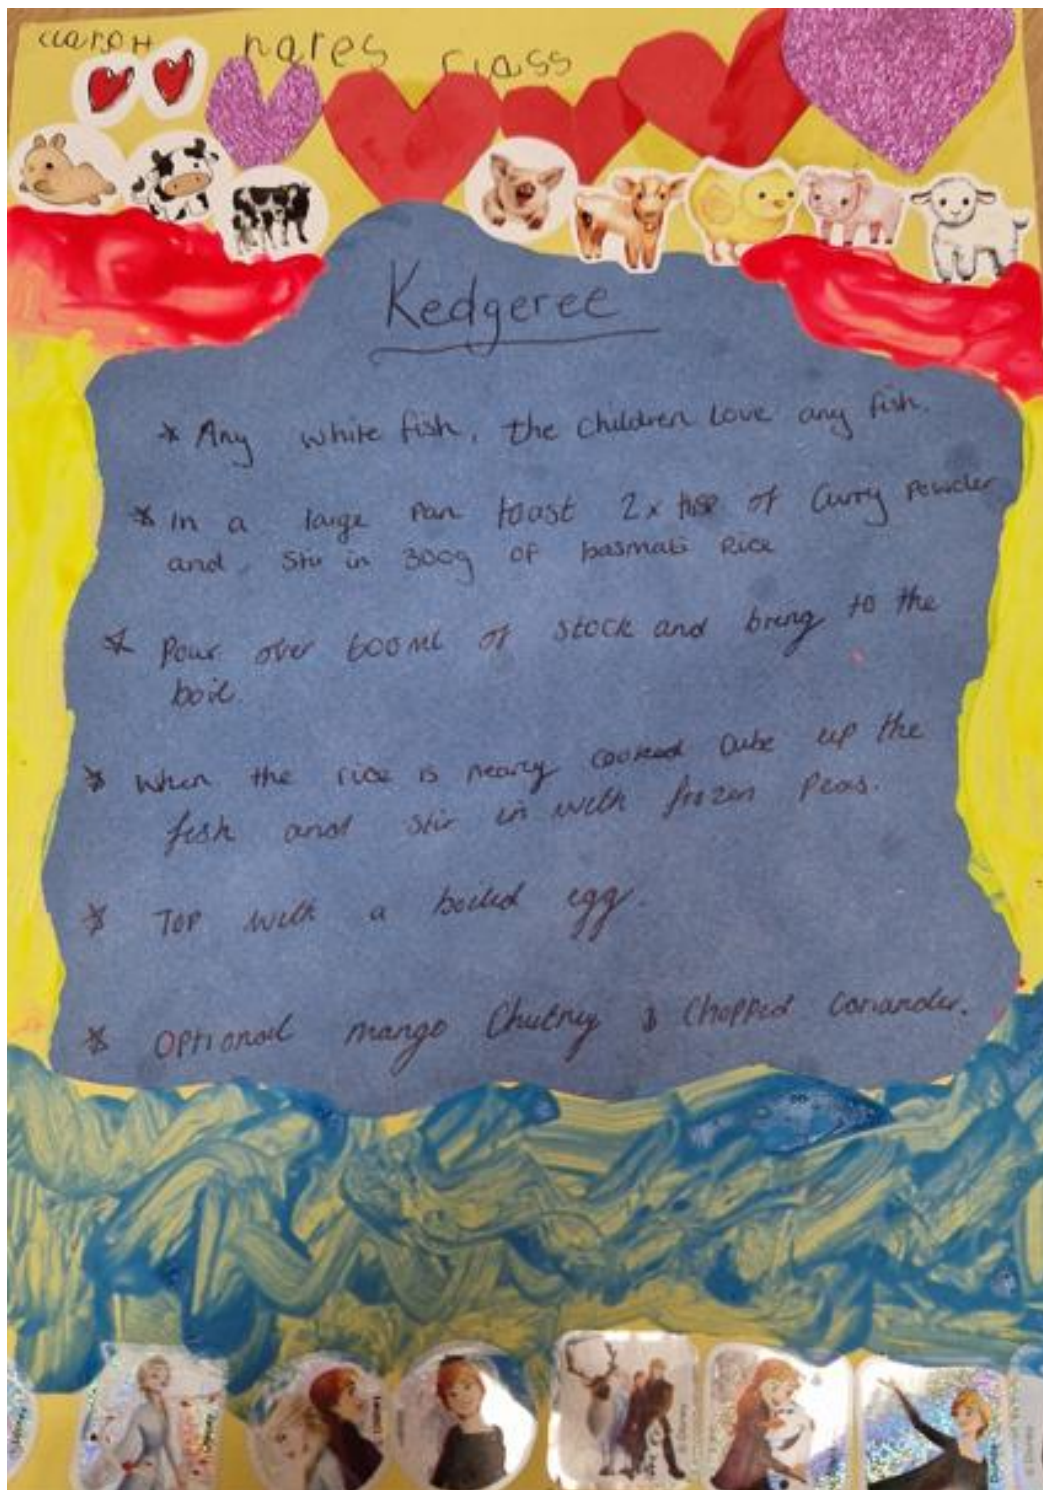 nares class
Kedgeree
* Any white fish, the children love any fish.
* In a large pan toast 2x tbsp of Curry Powder
and stir in 300g of basmati Rice
* Pour over 600ml of stock and bring to the
boil.
* When the rice is nearly cooked Cube up the
fish and stir in with frozen Peas.
* Top with a boiled egg.
* Optional mango Chutney & Chopped Coriander.
Disney